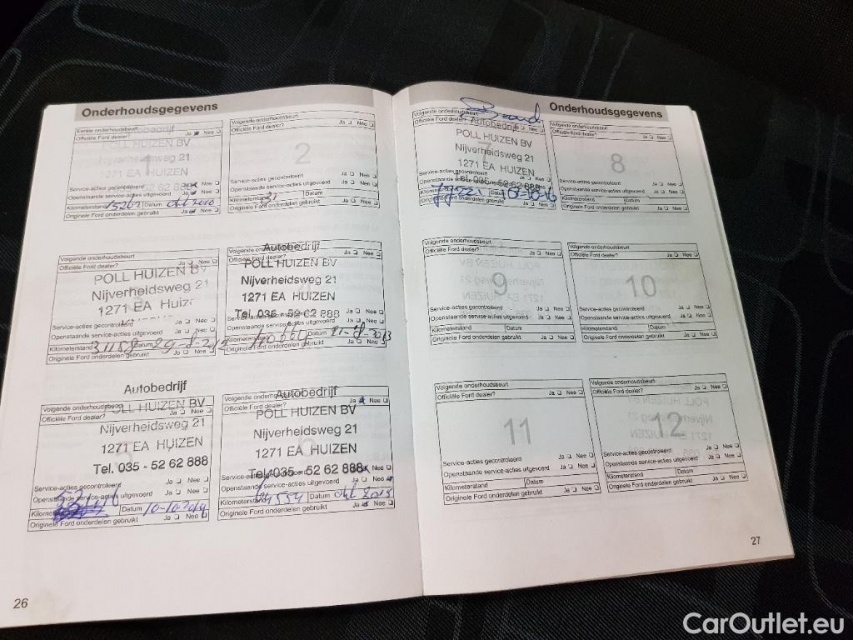 Onderhoudsgegevens
Eerste onderhoudsbeurt
Officiële Ford dealer? Ja Nee
POLL HUIZEN BV
Nijverheidsweg 21
1271 EA HUIZEN
Service-acties gecontroleerd Ja Nee
Openstaande service-acties uitgevoerd Ja Nee
Kilometerstand Datum
Originele Ford onderdelen gebruikt Ja Nee
Volgende onderhoudsbeurt
Officiële Ford dealer? Ja Nee
2
Service-acties gecontroleerd Ja Nee
Openstaande service-acties uitgevoerd Ja Nee
Kilometerstand Datum
Originele Ford onderdelen gebruikt Ja Nee
Volgende onderhoudsbeurt
Officiële Ford dealer? Ja Nee
POLL HUIZEN BV
Nijverheidsweg 21
1271 EA
Service-acties gecontroleerd Ja Nee
Openstaande service-acties uitgevoerd Ja Nee
Kilometerstand 31158 Datum
Originele Ford onderdelen gebruikt Ja Nee
Autobedrijf
Officiële Ford dealer? Ja Nee
POLL HUIZEN BV
Nijverheidsweg 21
1271 EA HUIZEN
Tel. 035 - 52 62 888
Openstaande service-acties uitgevoerd Ja Nee
Datum
Originele Ford onderdelen gebruikt Ja Nee
Autobedrijf
Volgende onderhoudsbeurt
POLL HUIZEN BV
Nijverheidsweg 21
1271 EA HUIZEN
Tel. 035 - 52 62 888
Service-acties gecontroleerd Ja Nee
Openstaande service-acties uitgevoerd Ja Nee
Datum 10-10-2014
Originele Ford onderdelen gebruikt Ja Nee
Autobedrijf
Officiële Ford dealer? Ja Nee
POLL HUIZEN BV
Nijverheidsweg 21
1271 EA HUIZEN
Tel. 035 - 52 62 888
Openstaande service-acties uitgevoerd Ja Nee
Kilometerstand Datum okt 2015
Originele Ford onderdelen gebruikt Ja Nee
26
Onderhoudsgegevens
Volgende onderhoudsbeurt
Officiële Ford dealer?
POLL HUIZEN BV
Nijverheidsweg 21
1271 EA HUIZEN
Tel. 035 - 52 62 888
Originele Ford onderdelen gebruikt Ja Nee
Volgende onderhoudsbeurt
Officiële Ford dealer? Ja Nee
8
Service-acties gecontroleerd Ja Nee
Openstaande service-acties uitgevoerd Ja Nee
Kilometerstand Datum
Originele Ford onderdelen gebruikt Ja Nee
Volgende onderhoudsbeurt
Officiële Ford dealer? Ja Nee
9
Service-acties gecontroleerd Ja Nee
Openstaande service-acties uitgevoerd Ja Nee
Kilometerstand Datum
Originele Ford onderdelen gebruikt Ja Nee
Volgende onderhoudsbeurt
Officiële Ford dealer? Ja Nee
10
Service-acties gecontroleerd Ja Nee
Openstaande service-acties uitgevoerd Ja Nee
Kilometerstand Datum
Originele Ford onderdelen gebruikt Ja Nee
Volgende onderhoudsbeurt
Officiële Ford dealer? Ja Nee
11
Service-acties gecontroleerd Ja Nee
Openstaande service-acties uitgevoerd Ja Nee
Kilometerstand Datum
Originele Ford onderdelen gebruikt Ja Nee
Volgende onderhoudsbeurt
Officiële Ford dealer? Ja Nee
12
Service-acties gecontroleerd Ja Nee
Openstaande service-acties uitgevoerd Ja Nee
Kilometerstand Datum
Originele Ford onderdelen gebruikt Ja Nee
27
CarOutlet.eu